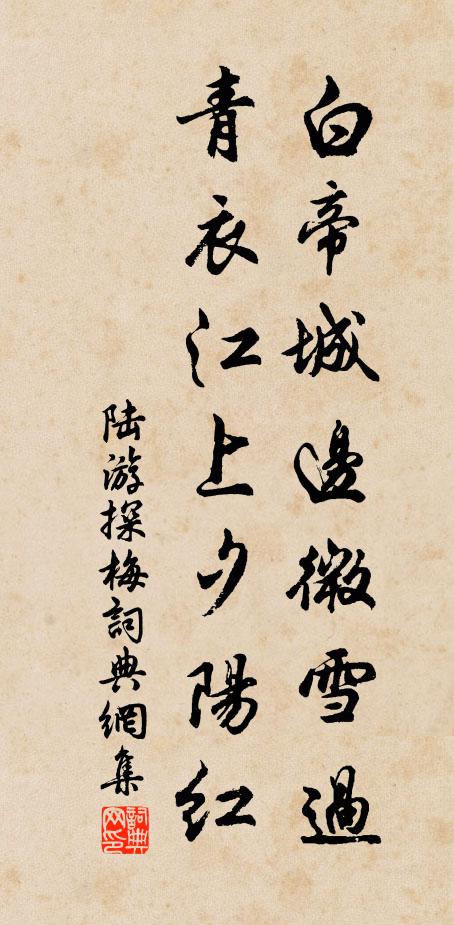 白帝城邊微雪過
青衣江上夕陽紅
陸游探梅詞典網集
詞典網印